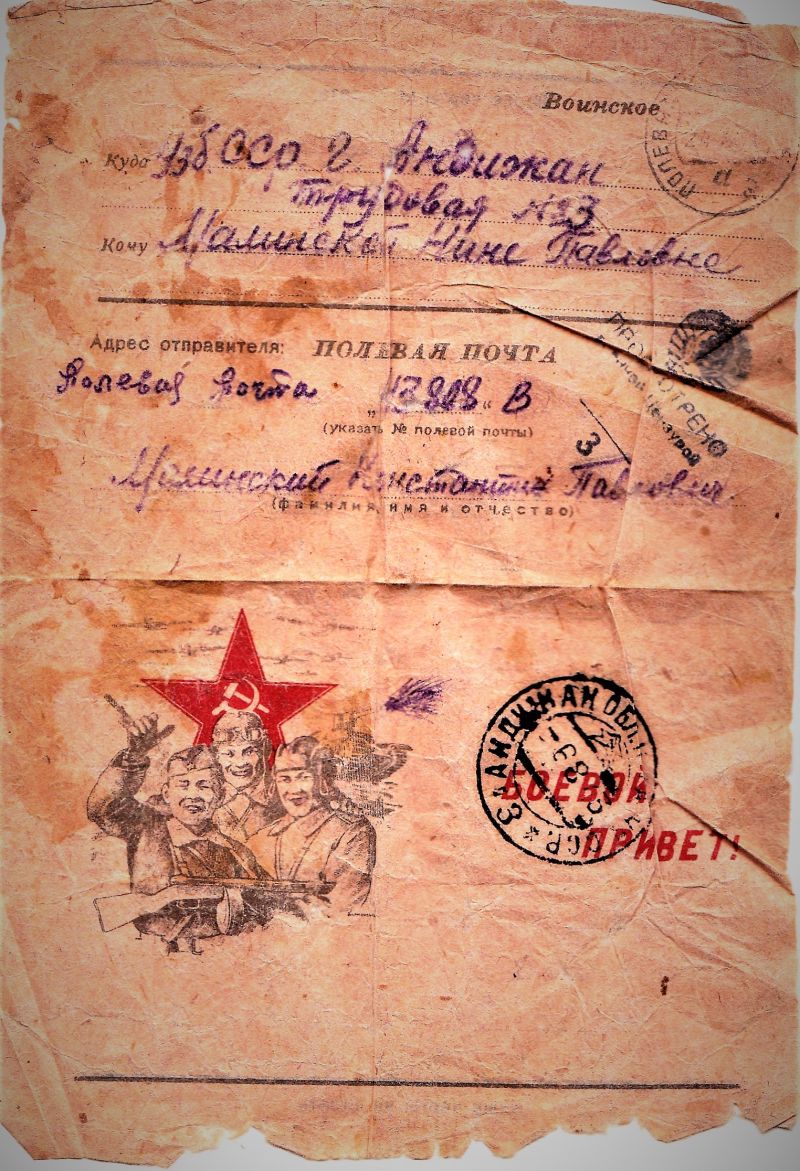 Воинское
Куда Узб. ССР г. Андижан
Трудовая №33
Кому Малинской Нине Павловне
Адрес отправителя: ПОЛЕВАЯ ПОЧТА
Полевая почта „ “ В
(указать № полевой почты)
Малинский Константин Павлович
(фамилия, имя и отчество)
ПОЛЕВ
ПРОСМОТРЕНО
Военной Цензурой
АНДИЖАН ОБЛ.
БОЕВОЙ
ПРИВЕТ!